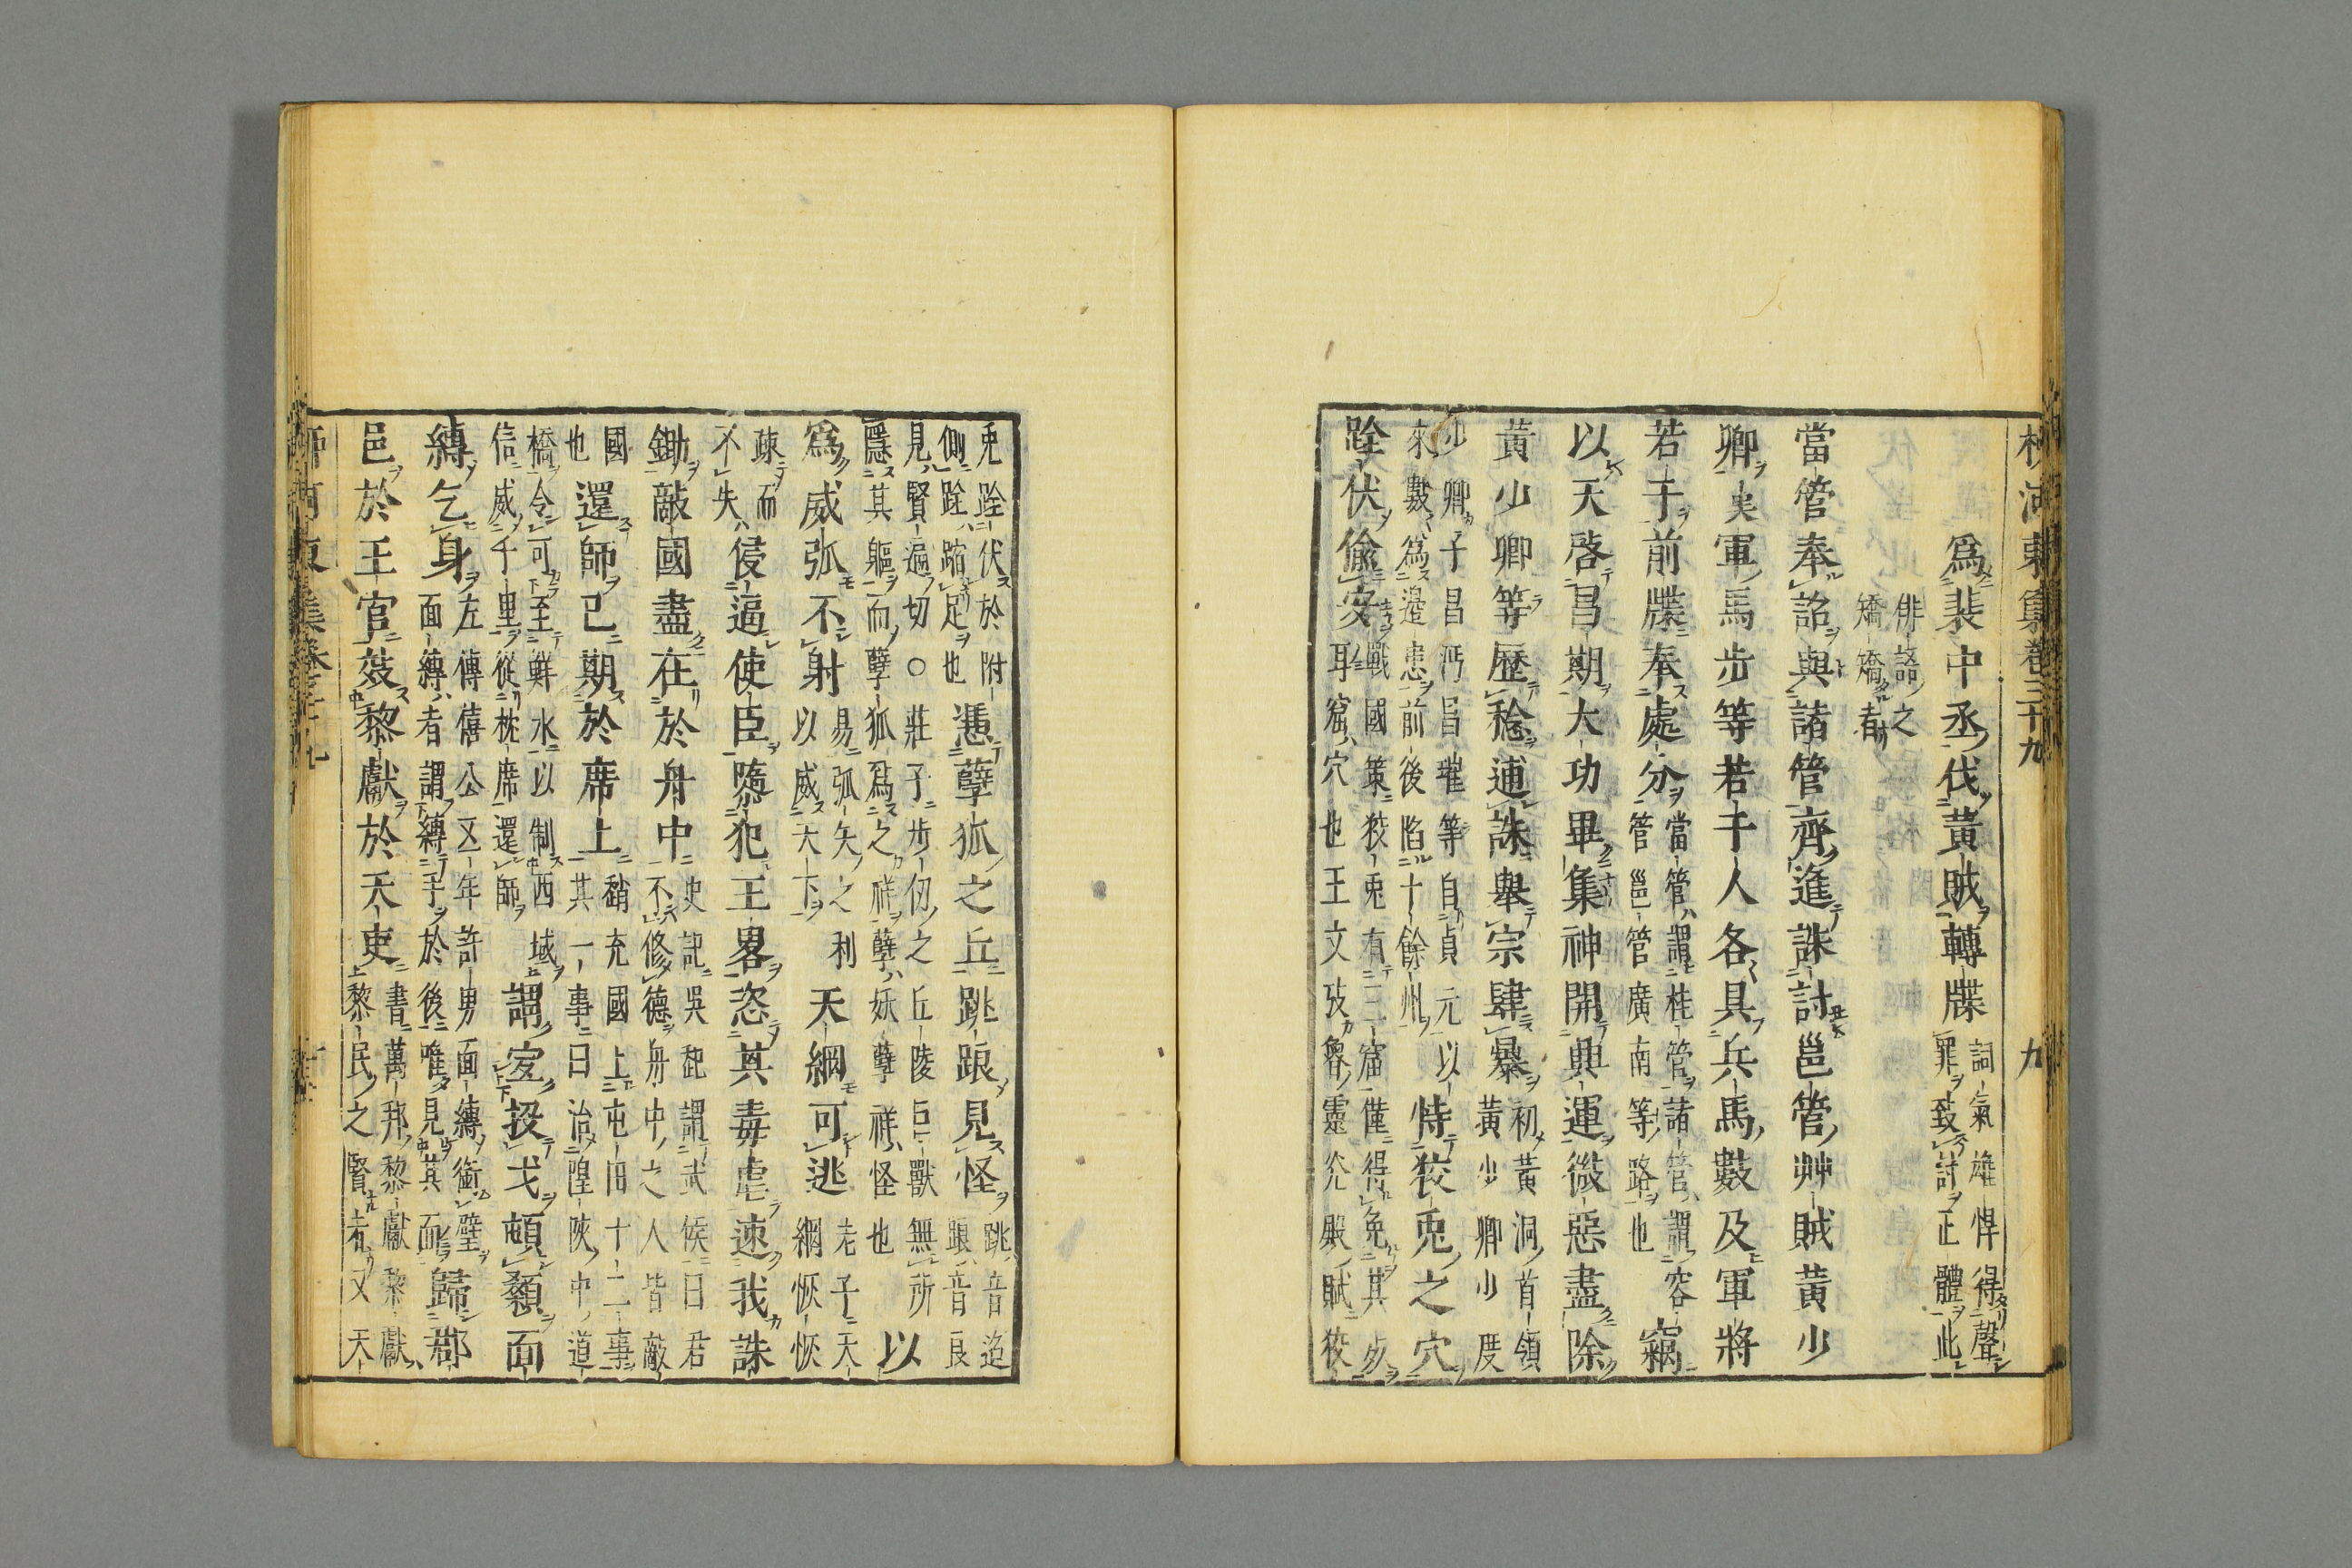 柳河東集卷三十九 九
俳諧之
矯矯者
爲裴中丞伐黃賊轉牒
詞氣雄悍得聲
罪致討正體此
當管奉詔與諸管齊進誅討邕管艸賊黃少
卿
軍馬步等若干人各具兵馬數及軍將
若干前牒奉處分
當管謂桂管諸管謂容
管邕管廣南等路也
竊
以天啓昌期大功畢集神開興運微惡盡除
黃少卿等歷稔逋誅舉宗肆暴
初黃洞首領
黃少卿少度
少卿子昌沔昌瓘等自貞元以
來數爲邊患前後陷十餘州
恃狡兎之穴
跧伏偸安
戰國策狡兎有三窟僅得免其
耳窟穴也王文攷魯靈光殿賦狡
兎跧伏於附
側跧蹜足也
憑孽狐之丘跳踉見怪
跳音迢
踉音良
見賢遍切○莊子步仞之丘陵巨獸無所
隱其軀而孽狐爲之祥孽妖孽祥怪也
以
爲威弧不射
易弧矢之利
以威天下
天網可逃
老子天
網恢恢
疎而
不失
侵逼使臣隳犯王畧恣其毒虐速我誅
鋤敵國盡在於舟中
史記吳起謂武侯曰君
不修德舟中之人皆敵
國
也
還師已期於席上
趙充國上屯田十二事
其一事曰治隍陝中道
橋令可至鮮水以制西域
信威千里從枕席還師
謂宜投戈頓顙面
縛乞身
左傳僖公六年許男面縛銜璧
面縛者謂縛手於後唯見其面
歸郡
邑於王官效黎獻於天吏
書萬邦黎獻黎獻
黎民之賢者又天
柳河東集卷三十九